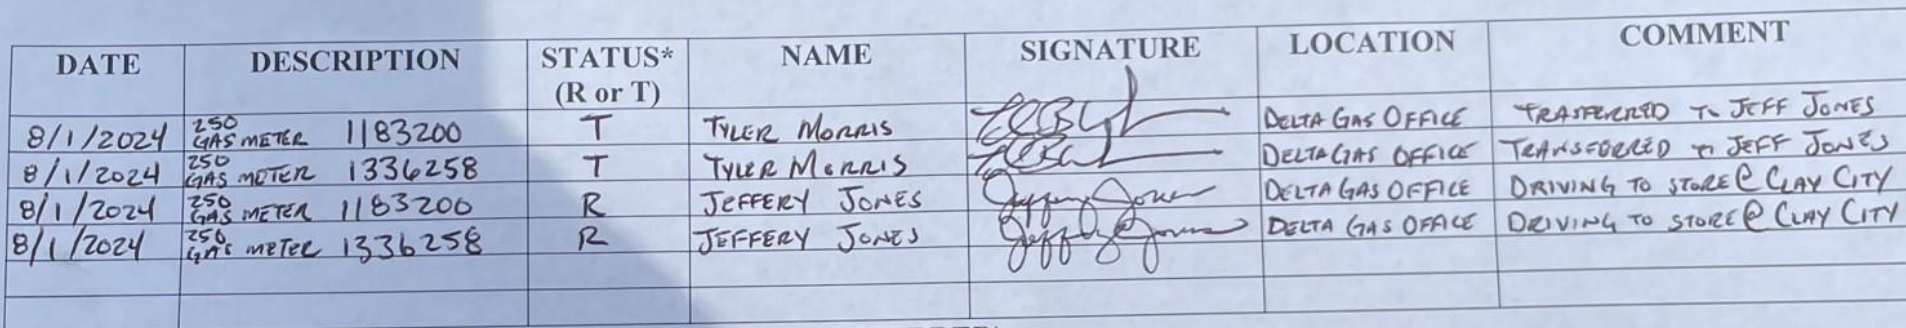 DATE DESCRIPTION STATUS* (R or T) NAME SIGNATURE LOCATION COMMENT
8/1/2024 250 GAS METER 1183200 T TYLER MORRIS DELTA GAS OFFICE TRASFERRED TO JEFF JONES
8/1/2024 250 GAS METER 1336258 T TYLER MORRIS DELTA GAS OFFICE TRANSFERRED TO JEFF JONES
8/1/2024 250 GAS METER 1183200 R JEFFERY JONES Jeffery Jones DELTA GAS OFFICE DRIVING TO STORE @ CLAY CITY
8/1/2024 250 GAS METER 1336258 R JEFFERY JONES Jeffery Jones DELTA GAS OFFICE DRIVING TO STORE @ CLAY CITY